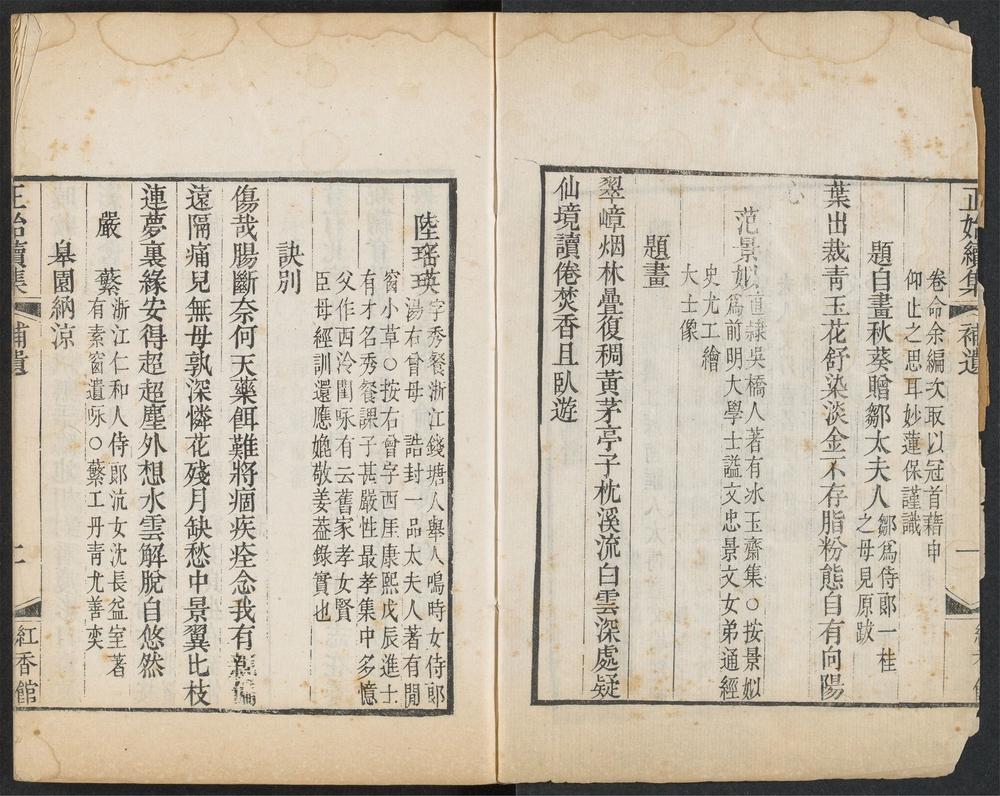 正始續集
補遺
一
卷命余編次取以冠首藉申
仰止之思耳妙蓮保謹識
題自畫秋葵贈鄒太夫人
鄒為侍郎一桂
之母見原跋
葉出裁靑玉花舒染淡金不存脂粉態自有向陽
心
范景姒
直隷吳橋人著有氷玉齋集○按景姒
為前明大學士謚文忠景文女弟通經
史尤工繪
大士像
題畫
翠嶂烟林疊復稠黃茅亭子枕溪流白雲深處疑
仙境讀倦焚香且臥遊
陸瑤英
字秀餐浙江錢塘人舉人鳴時女侍郞
湯右曾母 誥封一品太夫人著有閒
窗小草○按右曾字西厓康熙戊辰進士
有才名秀餐課子甚嚴性最孝集中多憶
父作西泠閨咏有云舊家孝女賢
臣母經訓還應媲敬姜葢錄實也
訣別
傷哉腸斷奈何天藥餌難將痼疾痊念我有親
遠隔痛兒無母孰深憐花殘月缺愁中景翼比枝
連夢裏緣安得超超塵外想水雲解脫自悠然
嚴 蘩
浙江仁和人侍郞沆女沈長益室著
有素窗遺咏○蘩工丹靑尤善奕
皋園納涼
正始續集
補遺
二
紅香館